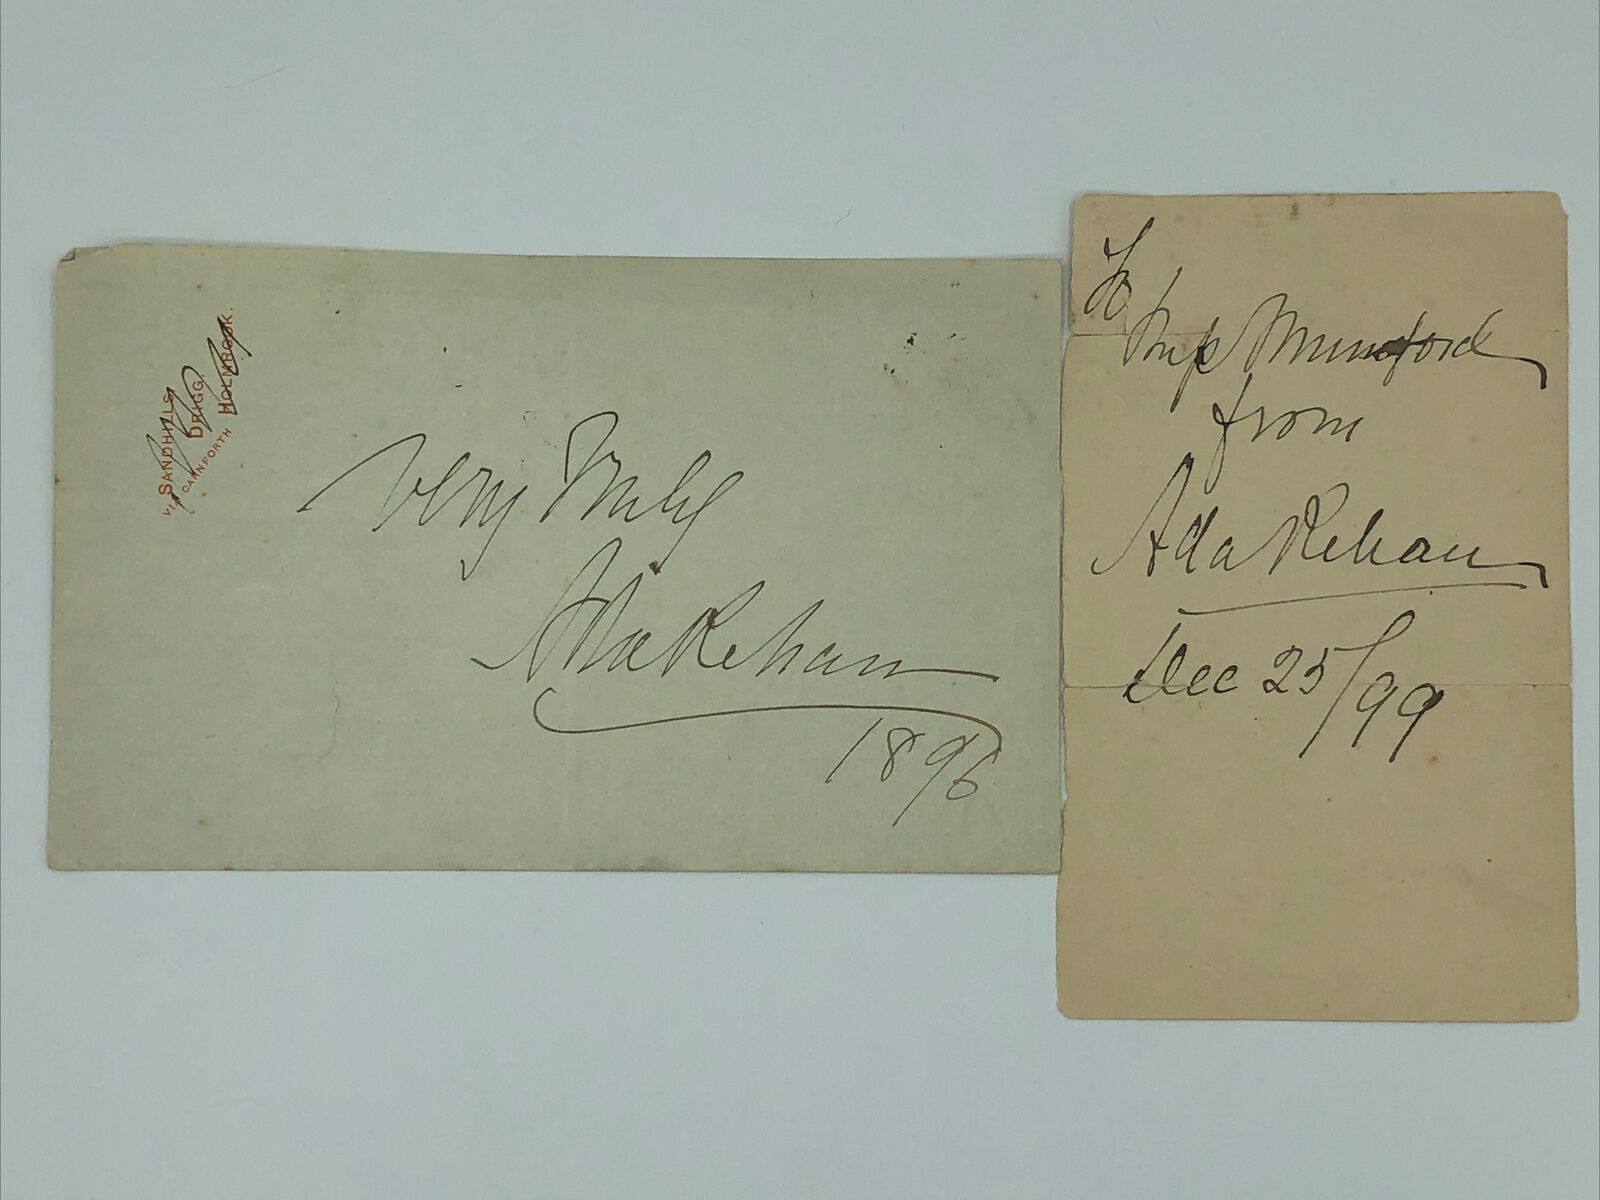 SANDHILLS,
DRIGG,
VIA CARNFORTH HOLMROOK.
Very Truly
Ada Rehan
1896
To
Miss Mumford
from
Ada Rehan
Dec 25/99